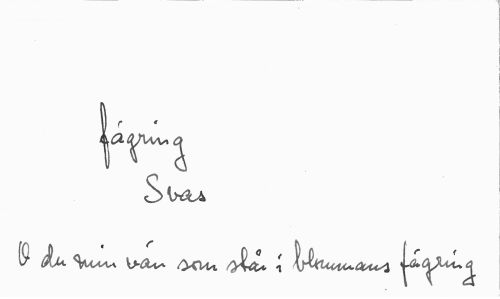 fägring
Svas
O du min vän som står i blommans fägring